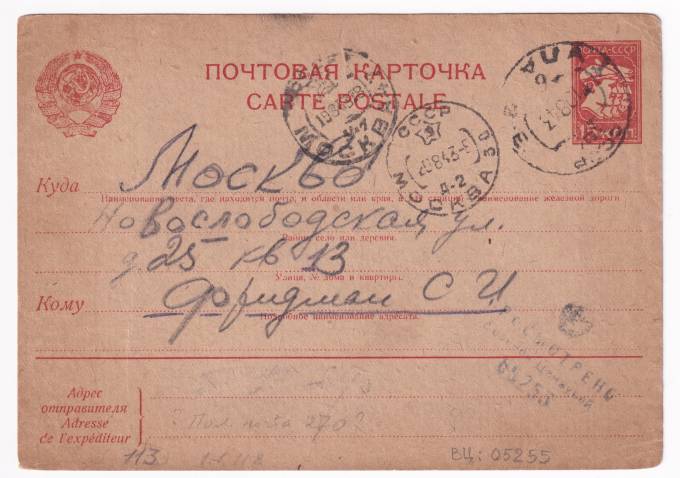 ПОЧТА СССР
ПОЧТОВАЯ КАРТОЧКА
CARTE POSTALE
15 КОП
МОСКВА
СССР
20 8 43
МОСКВА 30
Д-2
Куда Москва
Наименование места, где находится почта, и области или края, а для станций наименование железной дороги
Новослободская ул.
Район, село или деревня.
д 25 кв 13
Улица, № дома и квартиры.
Кому Фридман С И
Подробное наименование адресата.
ПРОСМОТРЕНО
Военной Цензурой
05255
Адрес
отправителя
Adresse
de l'expéditeur
Пол. почта 2703
113
ВЦ: 05255